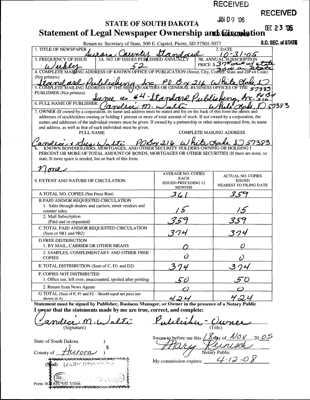 RECEIVED
RECEIVED
JAN 09 '06
DEC 23 '05
STATE OF SOUTH DAKOTA
Statement of Legal Newspaper Ownership and Circulation
Return to: Secretary of State, 500 E. Capitol, Pierre, SD 57501-5077
S.D. SEC. of STATE
1. TITLE OF NEWSPAPER
Aurora County Standard
2. DATE
10-31-05
3. FREQUENCY OF ISSUE
Weekly
3A. NO. OF ISSUES PUBLISHED ANNUALLY
52
3B. ANNUAL SUBSCRIPTION PRICE $
4. COMPLETE MAILING ADDRESS OF KNOWN OFFICE OF PUBLICATION (Street, City, County, State and ZIP+4 Code) (Not printers)
Standard Publishing Inc. PO Box 216 White Lake SD 57383
5. COMPLETE MAILING ADDRESS OF THE HEADQUARTERS OR GENERAL BUSINESS OFFICES OF THE PUBLISHER
Same as #4 - Standard Publishing Inc.
6. FULL NAME OF PUBLISHER
Candice M. Walti
White Lake, SD 57383
7. OWNER (If owned by a corporation, its name and address must be stated and on the back of this form the names and addresses of stockholders owning or holding 1 percent or more of total amount of stock. If not owned by a corporation, the names and addresses of the individual owners must be given. If owned by a partnership or other unincorporated firm, its name and address, as well as that of each individual must be given.
FULL NAME
COMPLETE MAILING ADDRESS
PO Box 216 White Lake, SD 57383
8. KNOWN BONDHOLDERS, MORTGAGES, AND OTHER SECURITY HOLDERS OWNING OR HOLDING 1 PERCENT OR MORE OF TOTAL AMOUNT OF BONDS, MORTGAGES OR OTHER SECURITIES (If there are none, so state. If more space is needed, list on back of this form.
None
9. EXTENT AND NATURE OF CIRCULATION
AVERAGE NO. COPIES EACH ISSUED PRECEDING 12 MONTHS
ACTUAL NO. COPIES ISSUED NEAREST TO FILING DATE
A. TOTAL NO. COPIES (Net Press Run)
B. PAID AND/OR REQUESTED CIRCULATION
1. Sales through dealers and carriers, street vendors and counter sales.
15
15
2. Mail Subscription (Paid and or requested)
359
359
C. TOTAL PAID AND/OR REQUESTED CIRCULATION (Sum of 9B1 and 9B2)
374
374
D. FREE DISTRIBUTION
1. BY MAIL, CARRIER OR OTHER MEANS
0
0
2. SAMPLES, COMPLIMENTARY AND OTHER FREE COPIES
0
0
E. TOTAL DISTRIBUTION (Sum of C, D1 and D2)
374
374
F. COPIES NOT DISTRIBUTED
1. Office use, left over, unaccounted, spoiled after printing
50
50
2. Return from News Agents
0
0
G. TOTAL (Sum of E, F1 and F2 - Should equal net press run shown in A)
424
424
Statement must be signed by Publisher, Business Manager, or Owner in the presence of a Notary Public
I swear that the statements made by me are true, correct, and complete:
Candice M. Walti
(Signature)
Publisher - Owner
(Title)
State of South Dakota
County of Aurora
Sworn to before me this 18 day of Nov 2005
Mary
Notary Public
My commission expires: 4-12-08